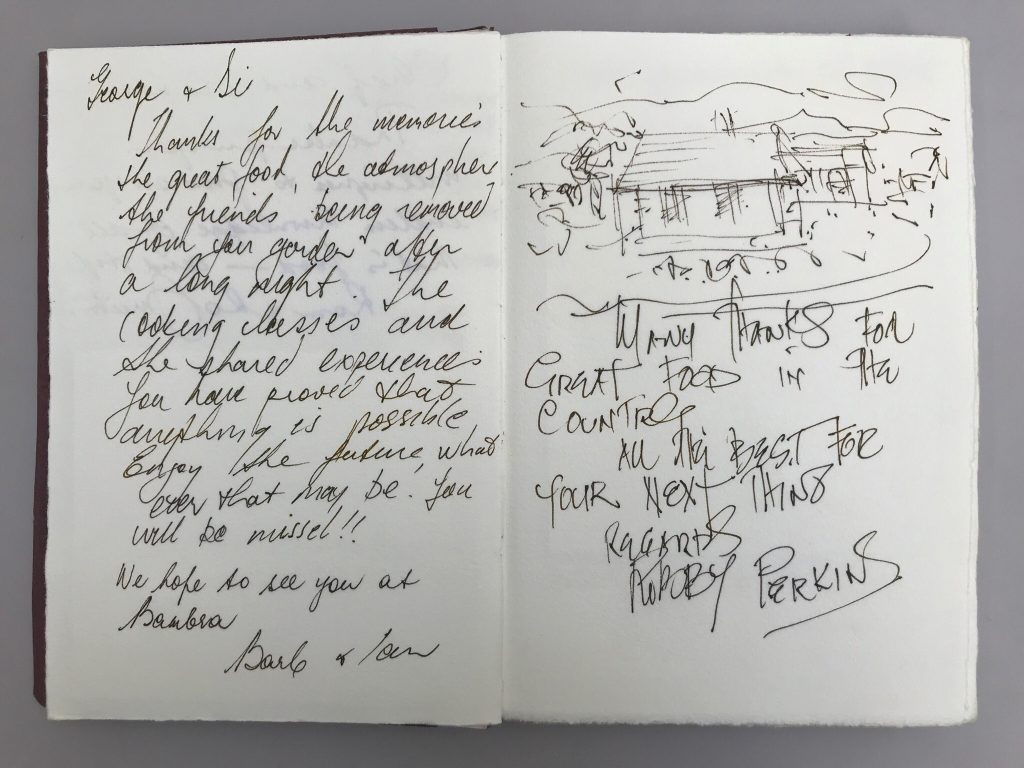 George & Si
Thanks for the memories
the great food, the atmospher
the friends being removed
from your garden after
a long night. The
Cooking classes and
the shared experiences
You have proved that
anything is possible
Enjoy the future, what
ever that may be. You
will be missed!!
We hope to see you at
Bambra
Barb & Ian
MANY THANKS FOR
GREAT FOOD IN THE
COUNTRY
ALL THE BEST FOR
YOUR NEXT THING
REGARDS
PERKINS